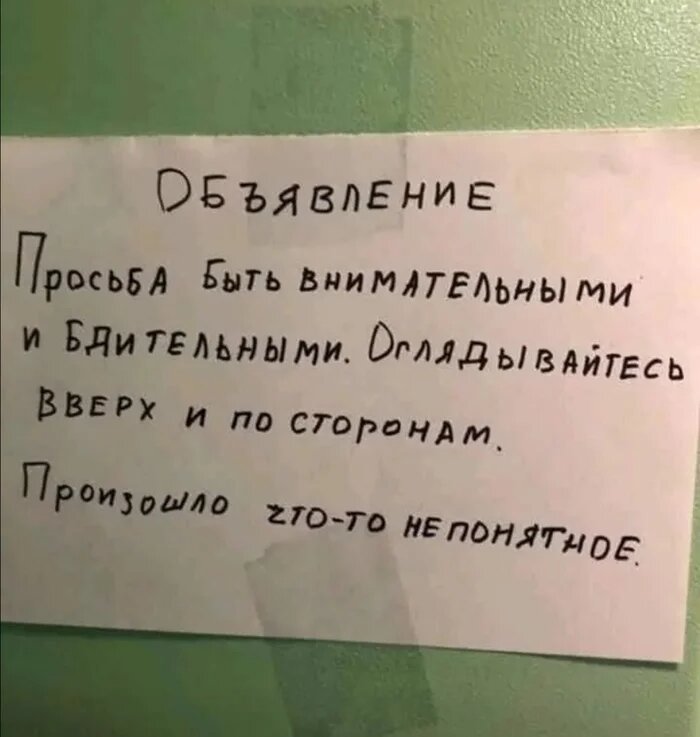 ОБЪЯВЛЕНИЕ
ПРОСЬБА БЫТЬ ВНИМАТЕЛЬНЫМИ
И БДИТЕЛЬНЫМИ. ОГЛЯДЫВАЙТЕСЬ
ВВЕРХ И ПО СТОРОНАМ.
ПРОИЗОШЛО ЧТО-ТО НЕПОНЯТНОЕ.